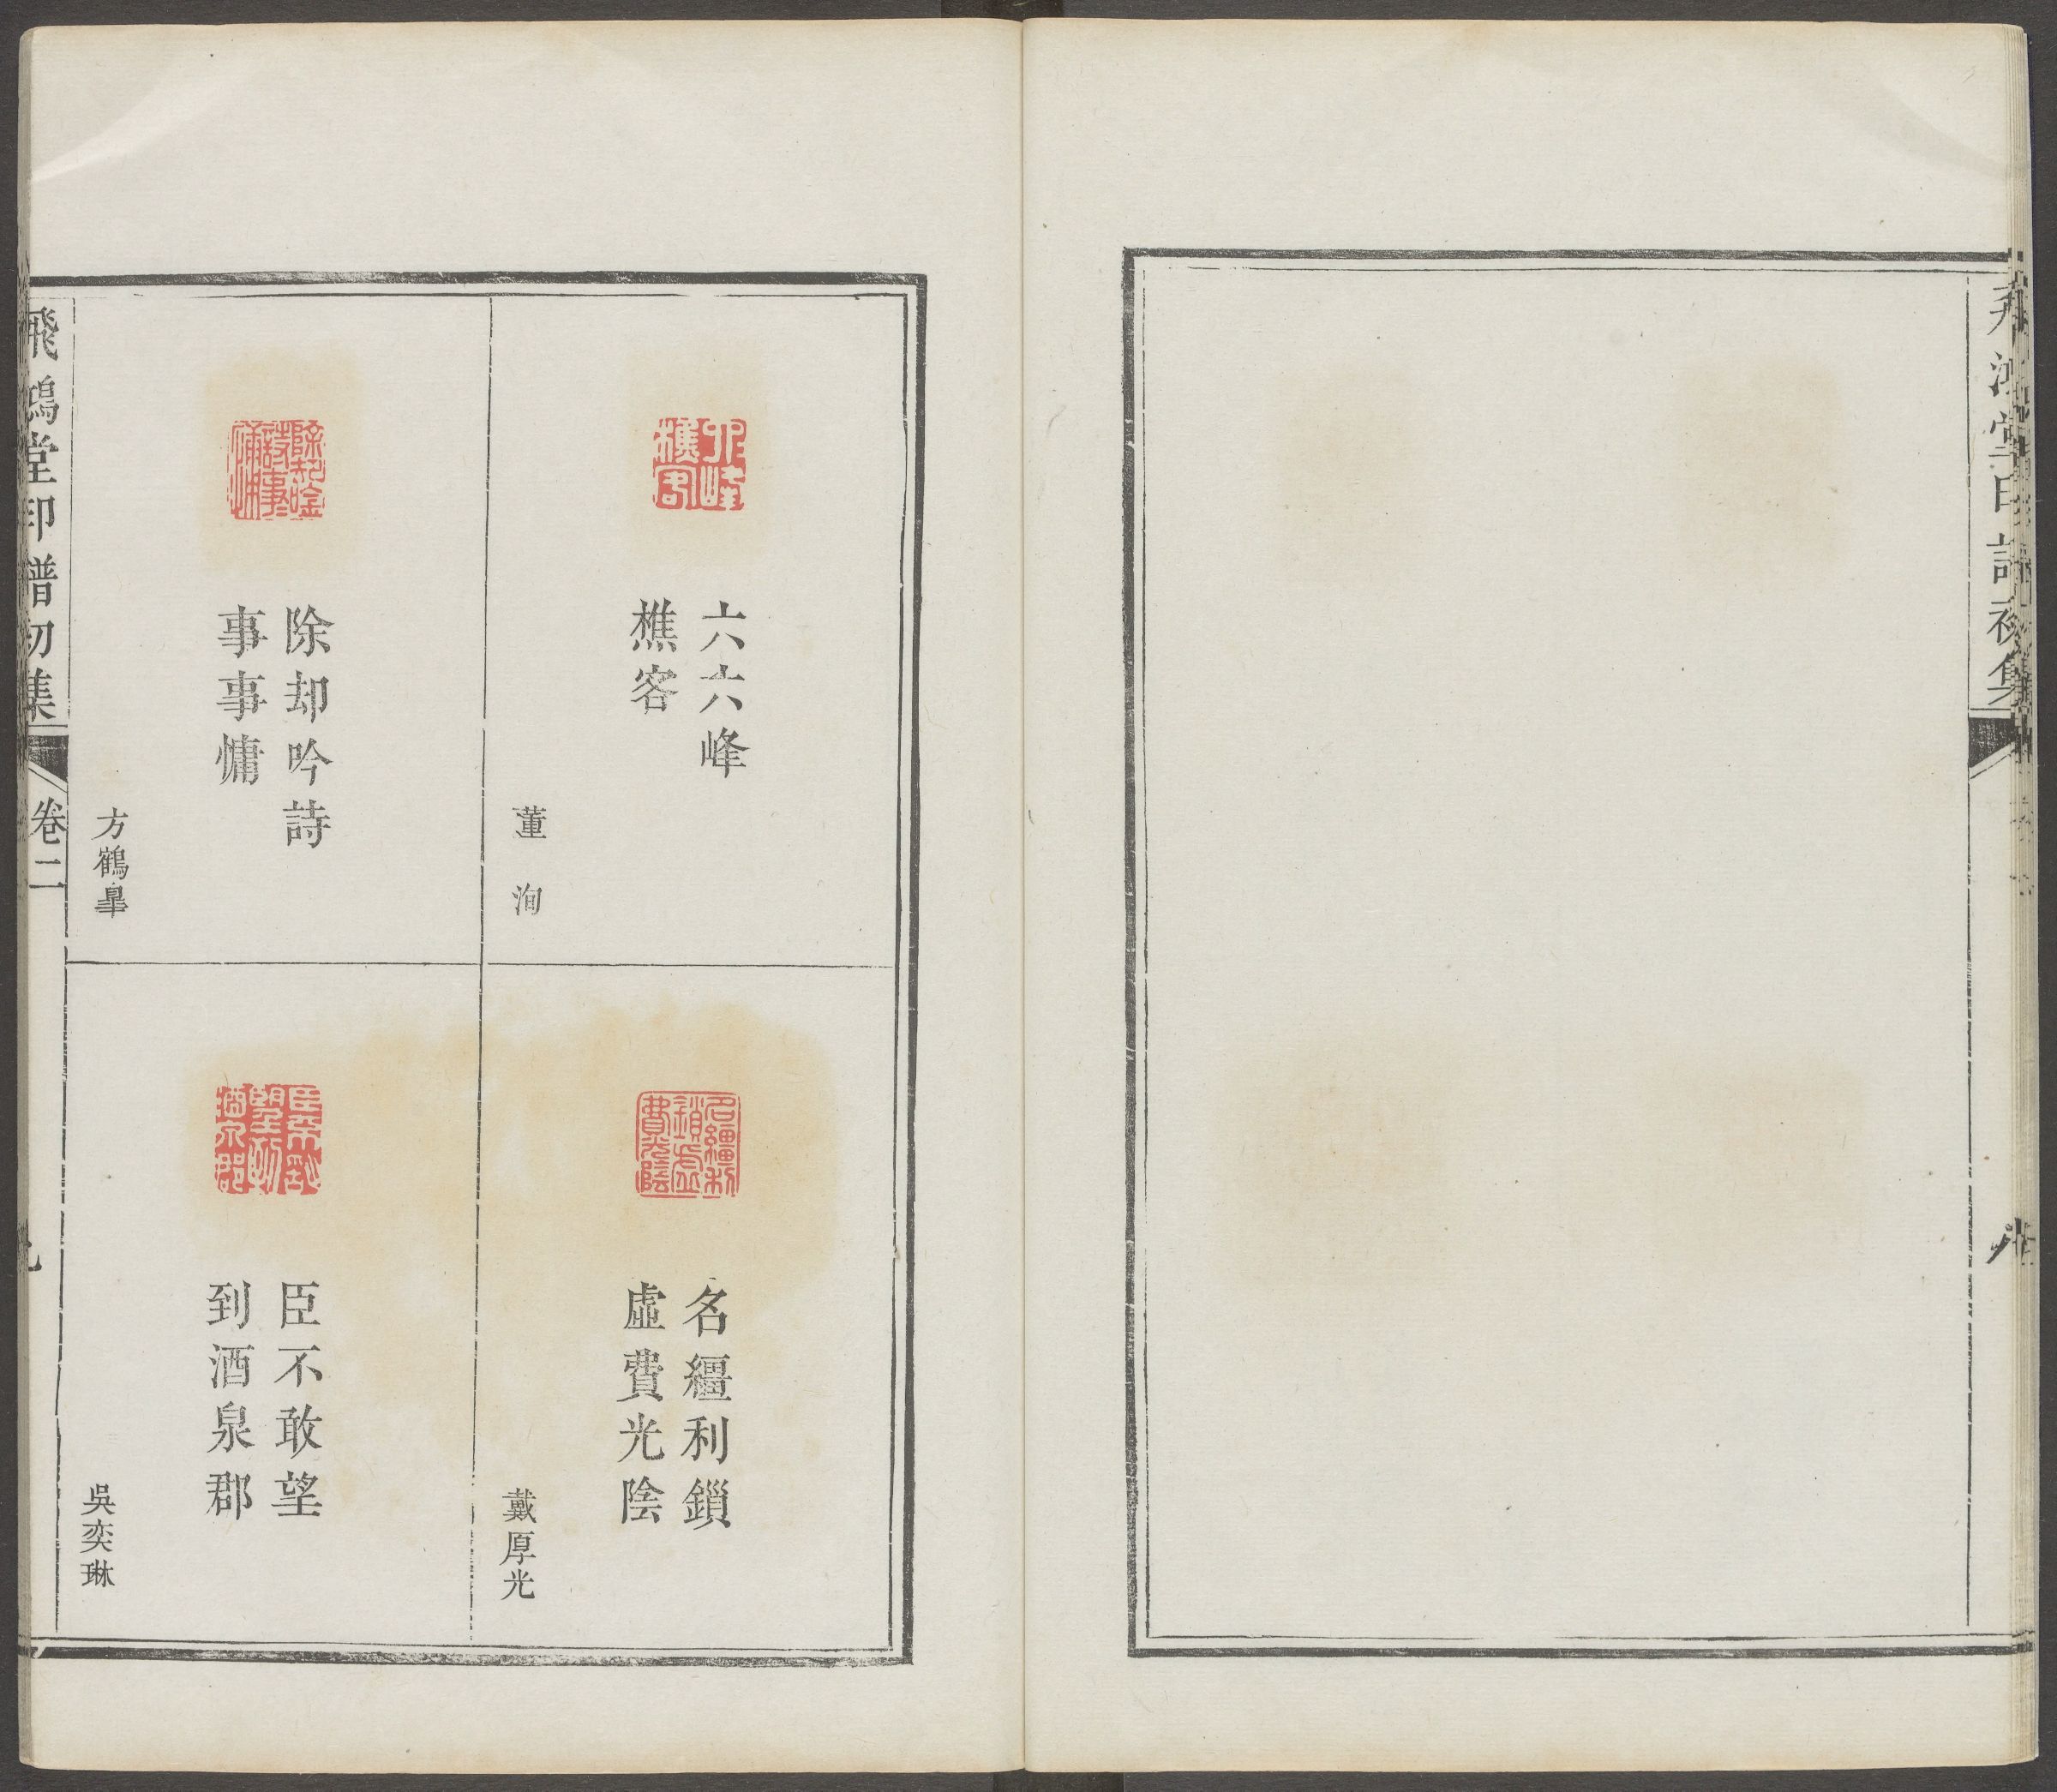 飛鴻堂印譜初集
六六峰
樵客
董洵
除却吟詩
事事慵
方鶴皐
名繮利鎖
虛費光陰
戴厚光
臣不敢望
到酒泉郡
吳奕琳
飛鴻堂印譜初集
卷二
九